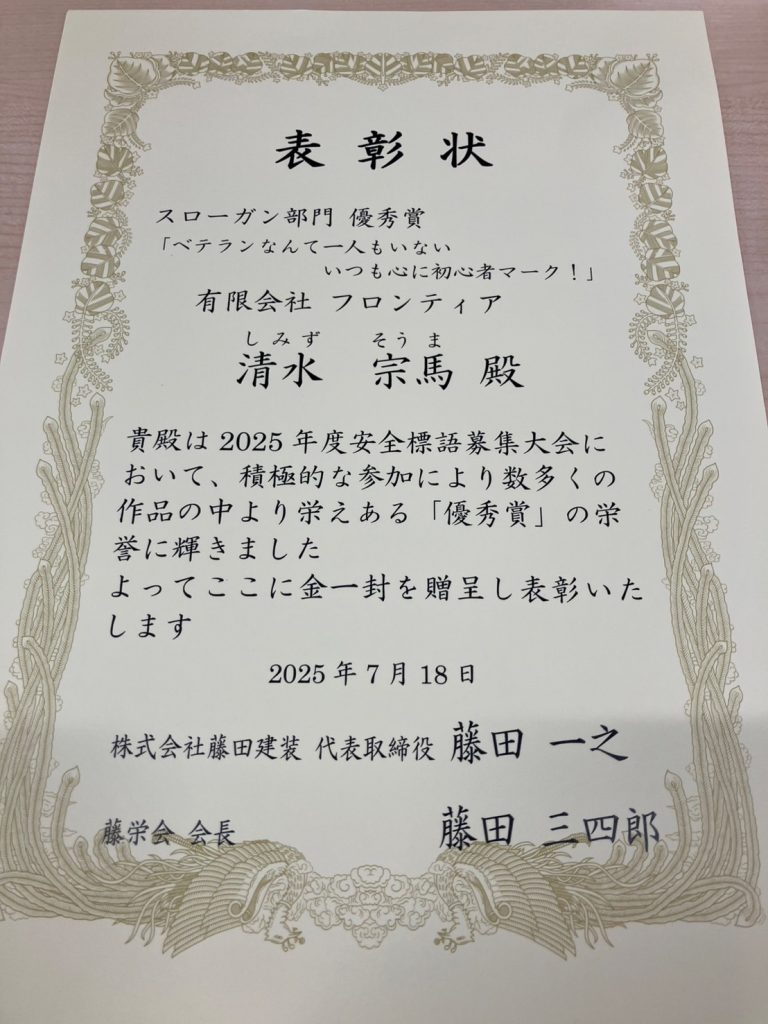 表彰状
スローガン部門 優秀賞
「ベテランなんて一人もいない
いつも心に初心者マーク！」
有限会社 フロンティア
しみず そうま
清水 宗馬 殿
貴殿は 2025 年度安全標語募集大会に
おいて、積極的な参加により数多くの
作品の中より栄えある「優秀賞」の栄
誉に輝きました
よってここに金一封を贈呈し表彰いた
します
2025 年 7 月 18 日
株式会社藤田建装 代表取締役 藤田 一之
藤栄会 会長 藤田 三四郎